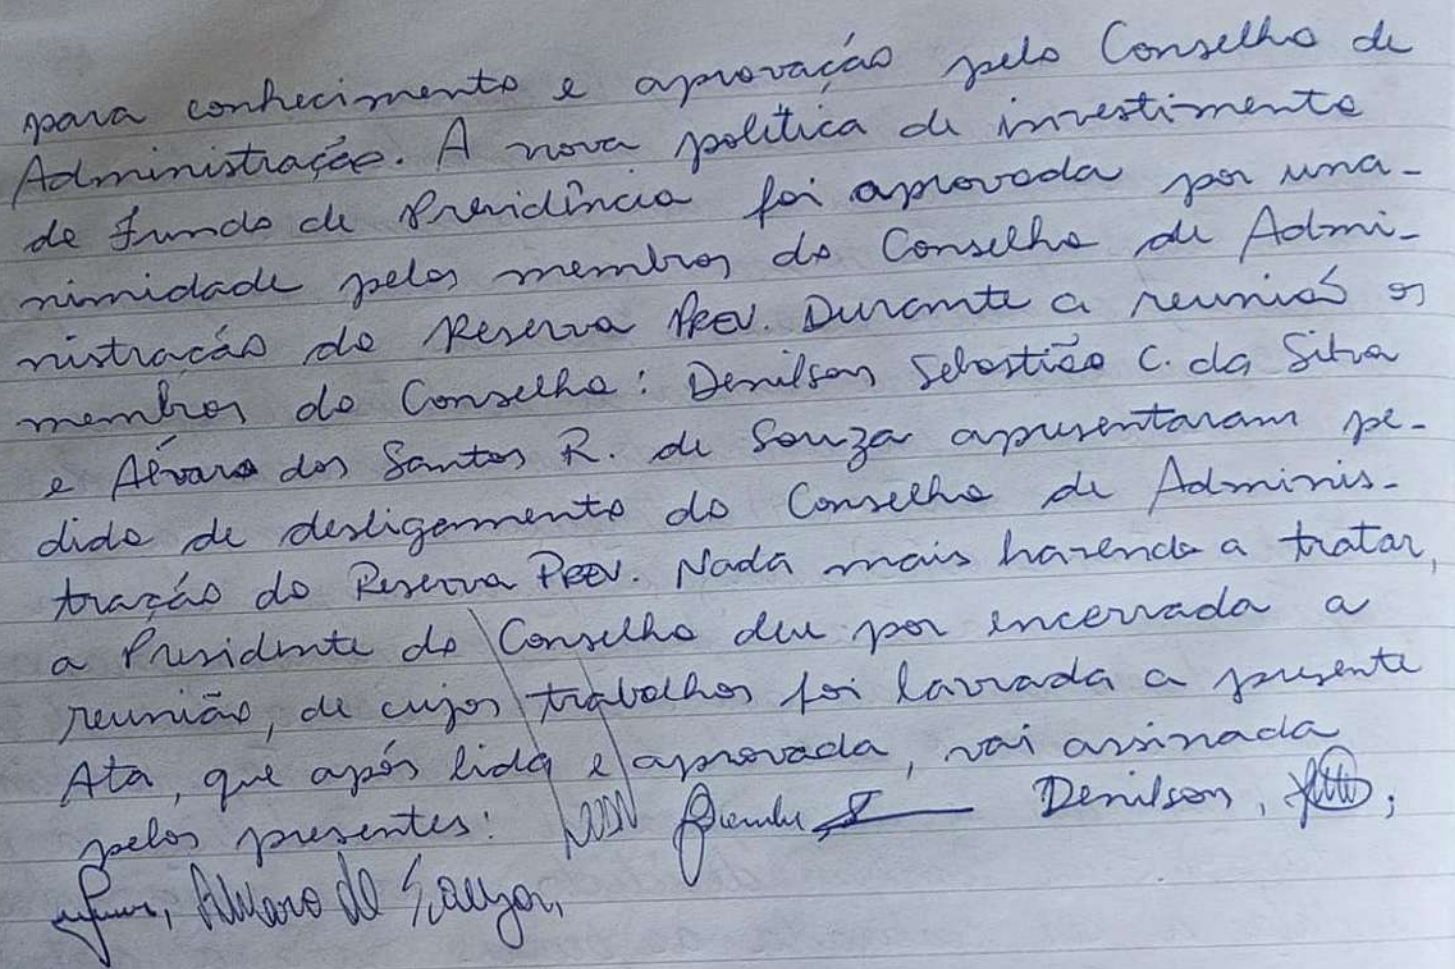 para conhecimento e aprovação pelo Conselho de
Administração. A nova política de investimento
de Fundo de Previdência foi aprovada por una-
nimidade pelos membros do Conselho de Admi-
nistração do Reserva Prev. Durante a reunião os
membros do Conselho: Denilson Sebastião C. da Silva
e Álvaro dos Santos R. de Souza apresentaram pe-
dido de desligamento do Conselho de Adminis-
tração do Reserva Prev. Nada mais havendo a tratar,
a Presidente do Conselho deu por encerrada a
reunião, de cujos trabalhos foi lavrada a presente
Ata, que após lida e aprovada, vai assinada
pelos presentes: Denilson,
Alvaro de Souza,